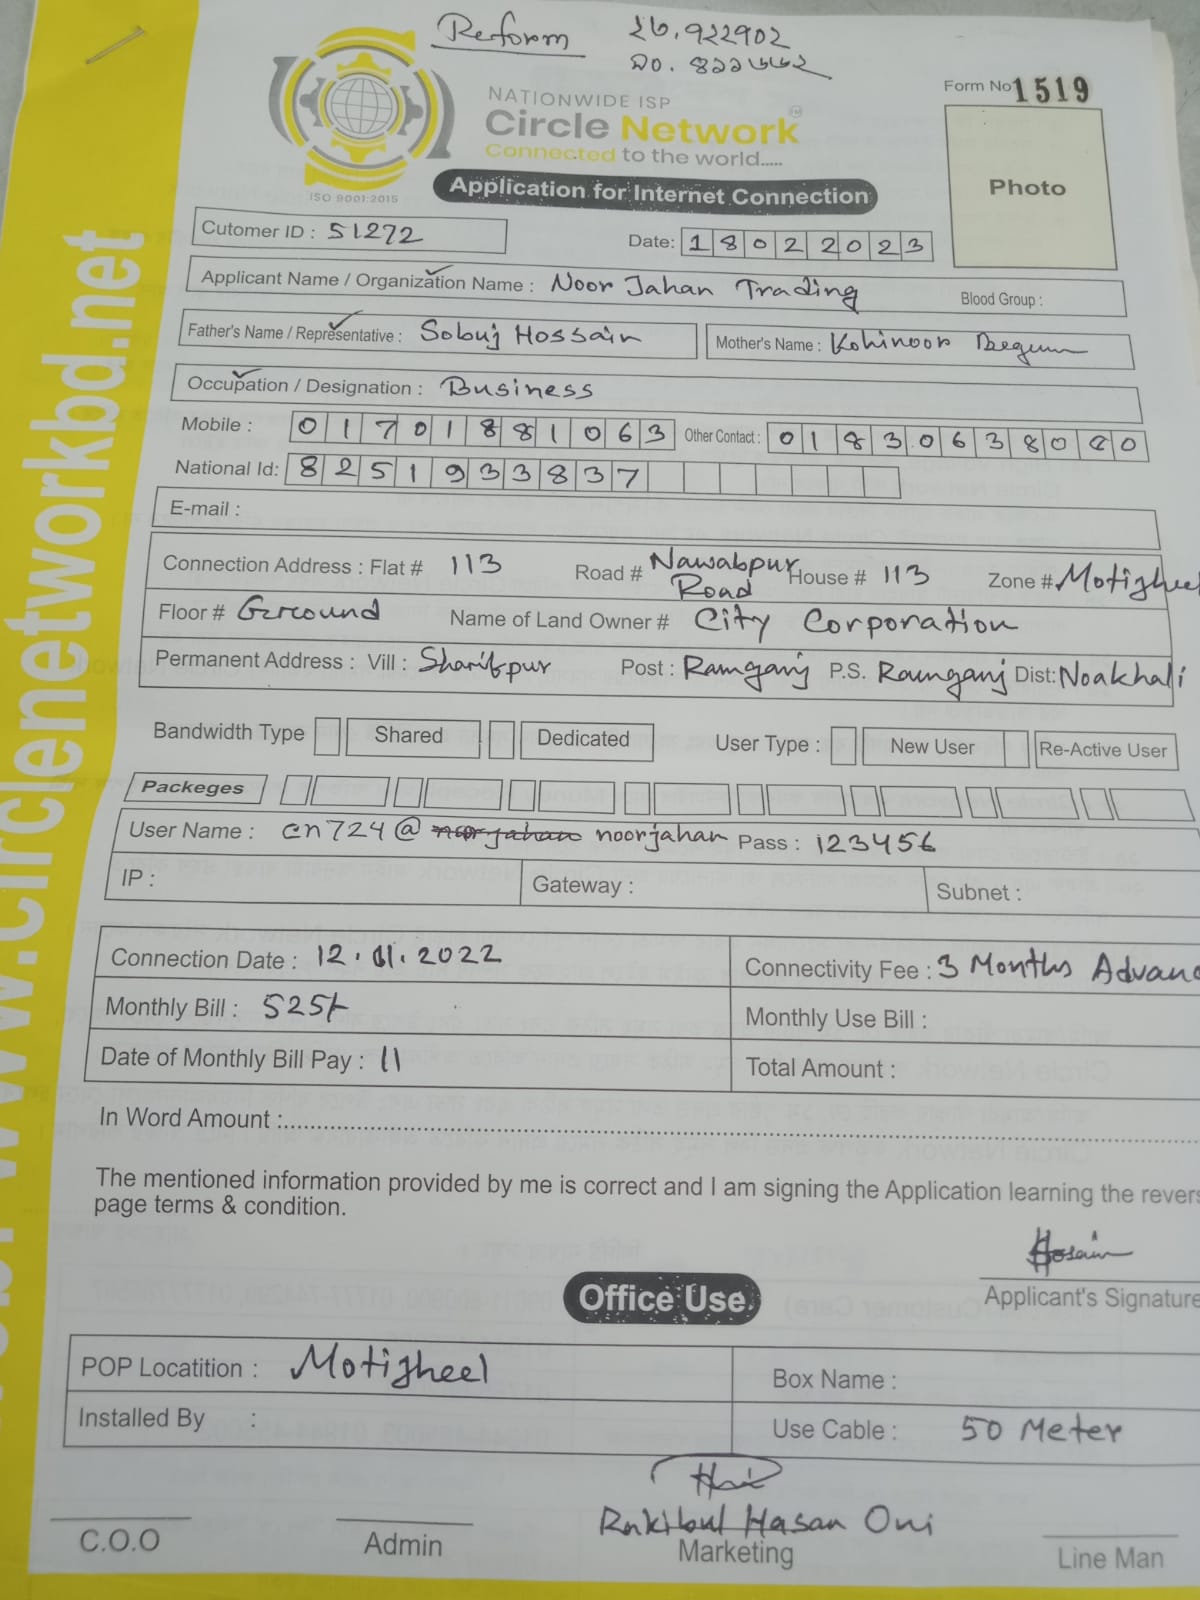 Reform
২৬.৭২২৭০২
Form No 1519
NATIONWIDE ISP
Circle Network
Connected to the world.....
ISO 9001:2015
Photo
Application for Internet Connection
Cutomer ID : 51272
Date: 18022023
Applicant Name / Organization Name : Noor Jahan Trading Blood Group :
Father's Name / Representative : Sobuj Hossain Mother's Name : Kohinoor Begum
Occupation / Designation : Business
Mobile : 01701881063 Other Contact : 018306380
National Id: 8251933837
E-mail :
Connection Address : Flat # 113 Road # Nawabpur Road House # 113 Zone # Motijheel
Floor # Ground Name of Land Owner # City Corporation
Permanent Address : Vill : Sharifpur Post : Ramganj P.S. Ramganj Dist: Noakhali
Bandwidth Type Shared Dedicated User Type : New User Re-Active User
Packeges
User Name : cn724@ noorjahan noorjahan Pass : 123456
IP : Gateway : Subnet :
Connection Date : 12.11.2022 Connectivity Fee : 3 Months Advanc
Monthly Bill : 525/- Monthly Use Bill :
Date of Monthly Bill Pay : 11 Total Amount :
In Word Amount :
The mentioned information provided by me is correct and I am signing the Application learning the revers
page terms & condition.
Hosain
Applicant's Signature
Office Use
POP Locatition : Motijheel Box Name :
Installed By : Use Cable : 50 Meter
Rakibul Hasan Oni
C.O.O Admin Marketing Line Man
www.circlenetworkbd.net